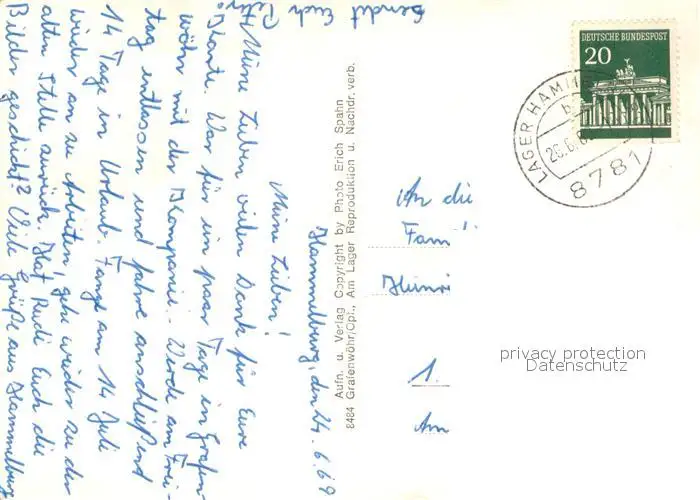 Hammelburg, den 24.6.69
Meine Lieben!
Meine Lieben vielen Dank für Eure
Karte. War für ein paar Tage in Grafen-
wöhr mit der Kompanie. Werde am Frei-
tag entlassen und fahre anschließend
14 Tage in Urlaub. Fange am 14 Juli
wieder an zu Arbeiten, gehe wieder zu der
alten Stelle zurück. Hat Rudi Euch die
Bilder geschickt? Viele Grüße aus Hammelburg
sendet Euch Peter
Aufn. u. Verlag Copyright by Photo Erich Spahn
8484 Grafenwöhr/Opf., Am Lager Reproduktion u. Nachdr. verb.
DEUTSCHE BUNDESPOST
20
LAGER HAMM
8781
An die
Fam
1.
Am
privacy protection
Datenschutz